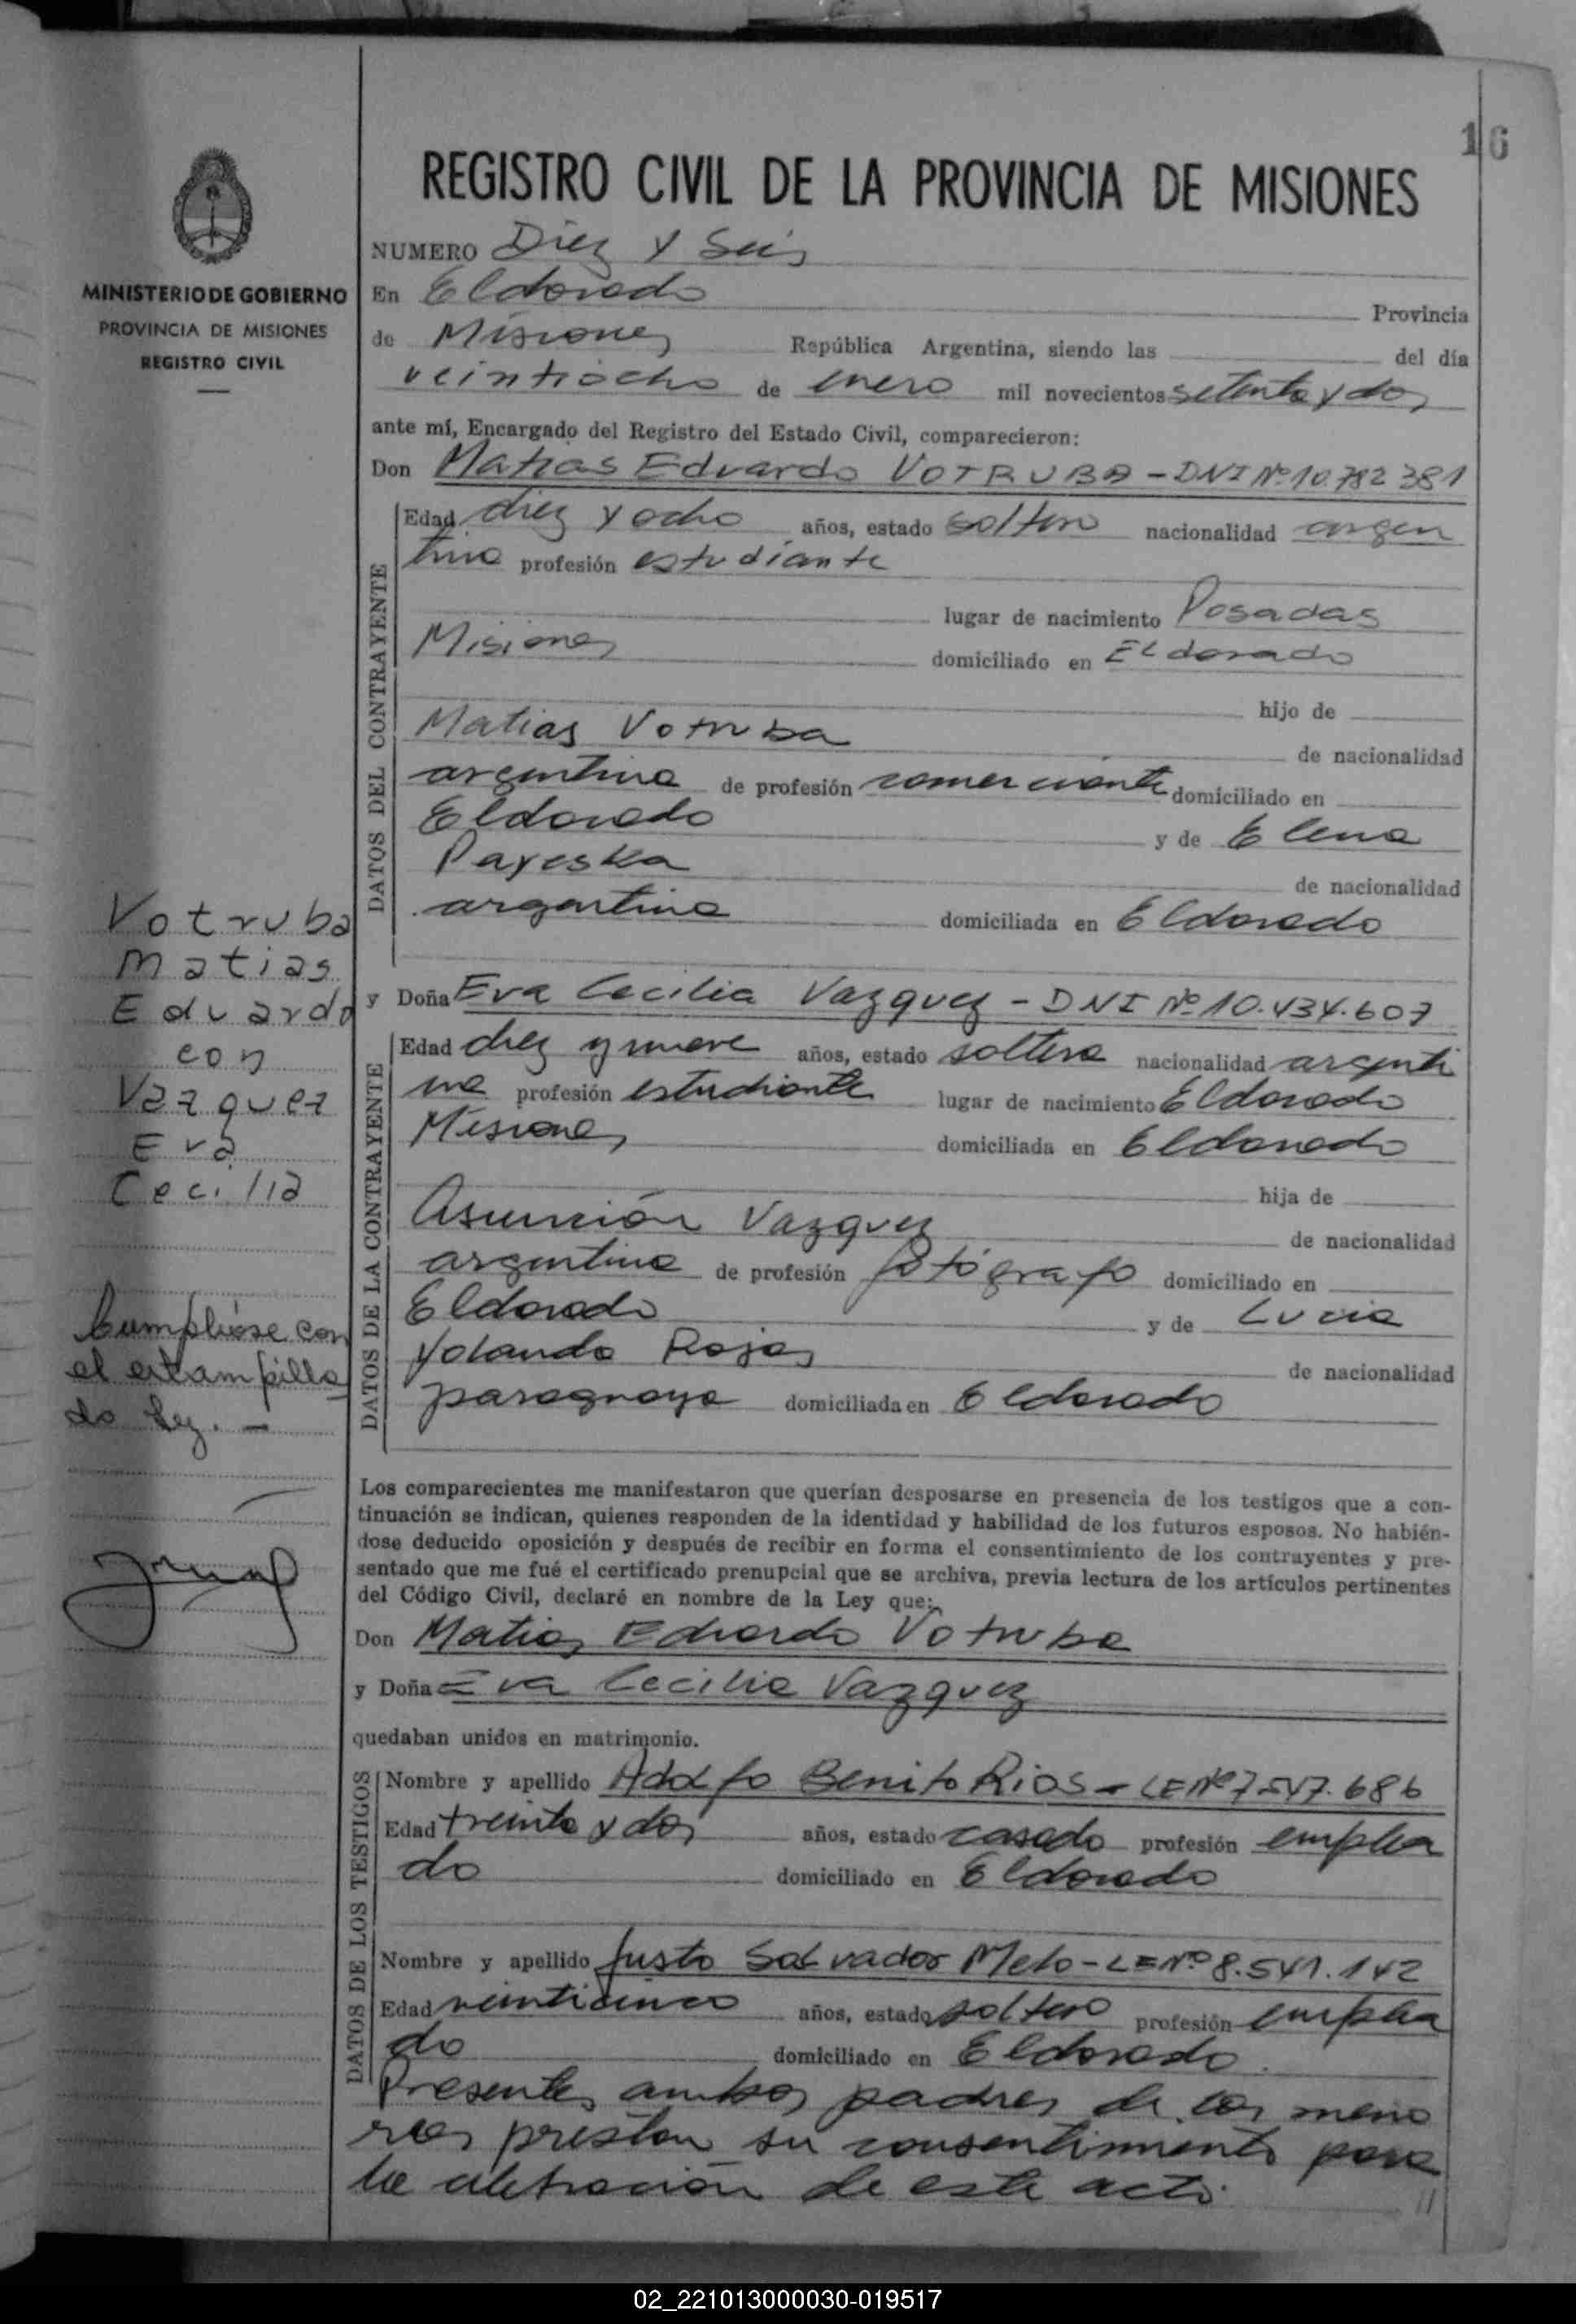 16
REGISTRO CIVIL DE LA PROVINCIA DE MISIONES
MINISTERIO DE GOBIERNO
PROVINCIA DE MISIONES
REGISTRO CIVIL
NUMERO Diez y Seis
En Eldorado Provincia
de Misiones República Argentina, siendo las del día
veintiocho de enero mil novecientos setenta y dos
ante mí, Encargado del Registro del Estado Civil, comparecieron:
Don Matias Eduardo VOTRUBA - DNI Nº 10.782 381
DATOS DEL CONTRAYENTE
Edad diez y ocho años, estado soltero nacionalidad argen
tina profesión estudiante
lugar de nacimiento Posadas
Misiones domiciliado en Eldorado
hijo de
Matias Votruba de nacionalidad
argentina de profesión comerciante domiciliado en
Eldorado y de Elena
Payeska de nacionalidad
argentina domiciliada en Eldorado
Votruba
Matias
Eduardo
con
Vazquez
Eva
Cecilia
y Doña Eva Cecilia Vazquez - DNI Nº 10.434.607
DATOS DE LA CONTRAYENTE
Edad diez y nueve años, estado soltera nacionalidad argenti
na profesión estudiante lugar de nacimiento Eldorado
Misiones domiciliada en Eldorado
hija de
Asunción Vazquez de nacionalidad
argentina de profesión fotógrafo domiciliado en
Eldorado y de Lucia
Yolanda Rojas de nacionalidad
paraguaya domiciliada en Eldorado
Cumplióse con
el estampilla
do ley. -
Los comparecientes me manifestaron que querían desposarse en presencia de los testigos que a con-
tinuación se indican, quienes responden de la identidad y habilidad de los futuros esposos. No habién-
dose deducido oposición y después de recibir en forma el consentimiento de los contrayentes y pre-
sentado que me fué el certificado prenupcial que se archiva, previa lectura de los artículos pertinentes
del Código Civil, declaré en nombre de la Ley que:
Don Matias Eduardo Votruba
y Doña Eva Cecilia Vazquez
quedaban unidos en matrimonio.
DATOS DE LOS TESTIGOS
Nombre y apellido Adolfo Benito Rios - LE Nº 7.547.686
Edad treinta y dos años, estado casado profesión emplea
do domiciliado en Eldorado
Nombre y apellido Justo Salvador Melo - LE Nº 8.541.142
Edad veinticinco años, estado soltero profesión emplea
do domiciliado en Eldorado
Presentes ambos padres de los meno
res prestan su consentimiento para
la celebración de este acto. //
02_221013000030-019517